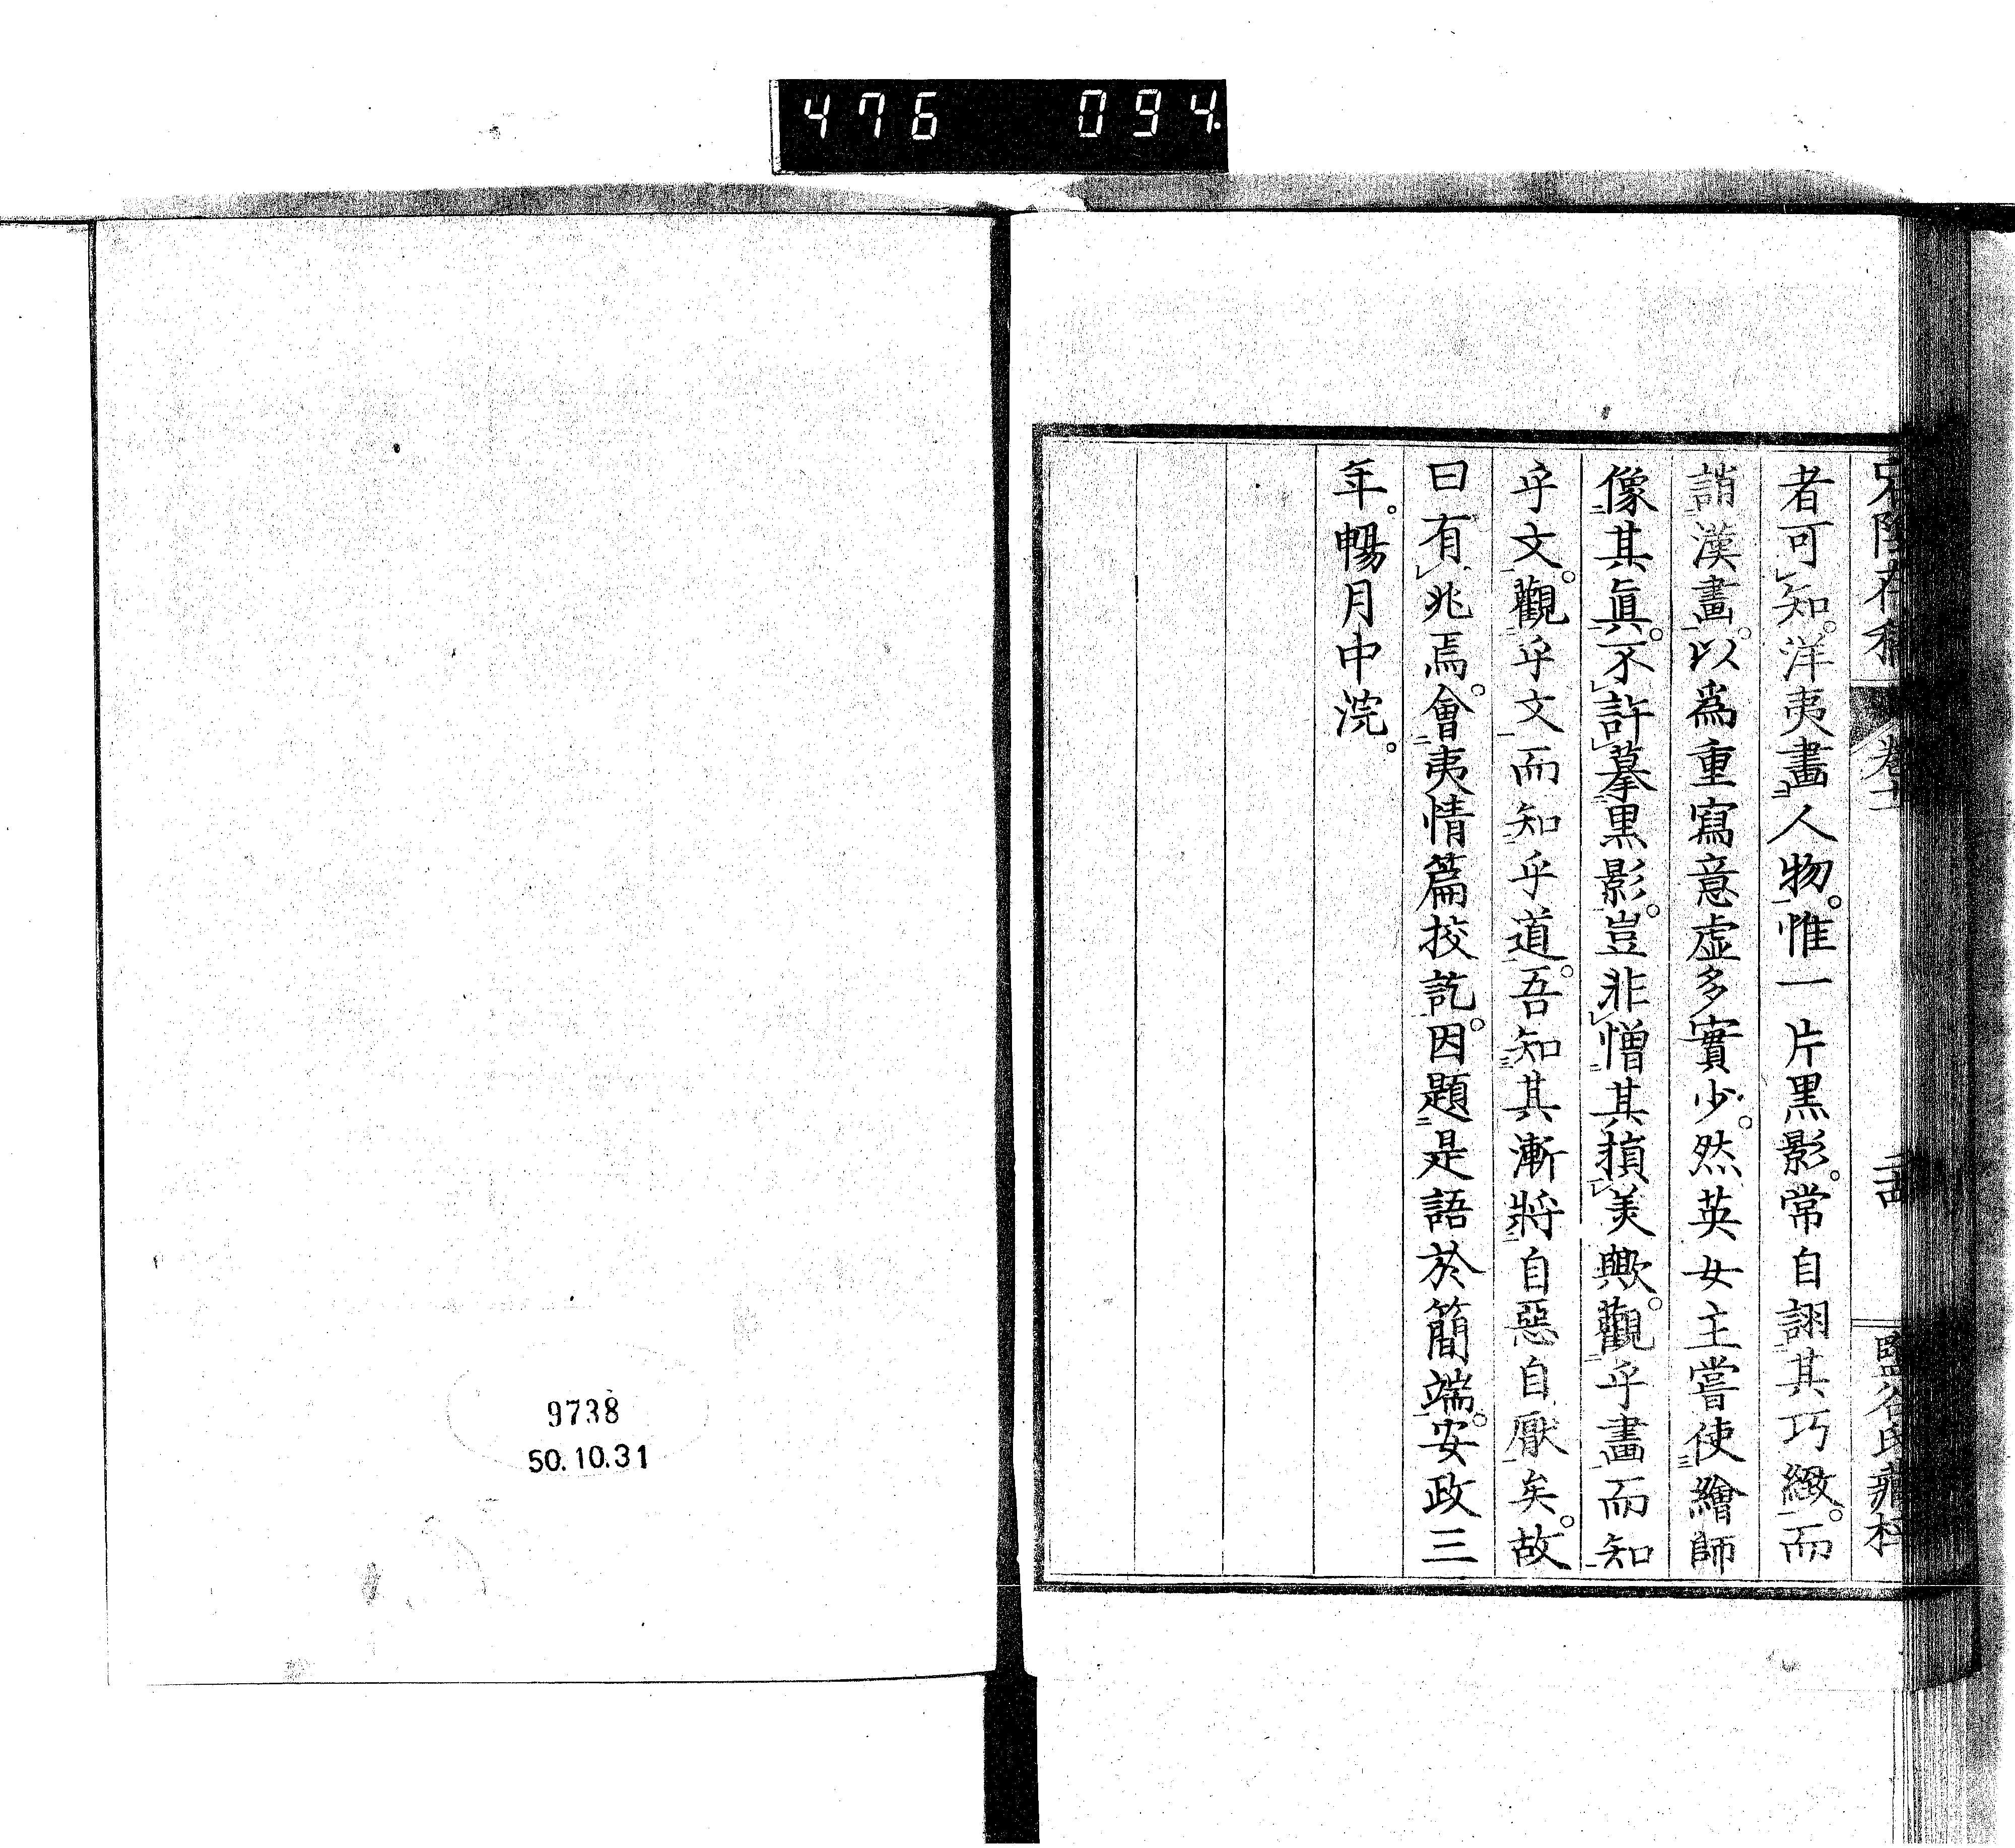 476 094
宕陰存稿 卷十 鹽谷氏藏板
者可知。洋夷畫人物。惟一片黒影。常自詡其巧緻。而
誚漢畫。以爲重寫意虛多實少。然英女主嘗使繪師
像其眞。不許摹黒影。豈非憎其損美歟。觀乎畫而知
乎文。觀乎文而知乎道。吾知其漸將自惡自厭矣。故
曰有兆焉。會夷情篇挍訖。因題是語於簡端。安政三
年。暢月中浣。
9738
50.10.31